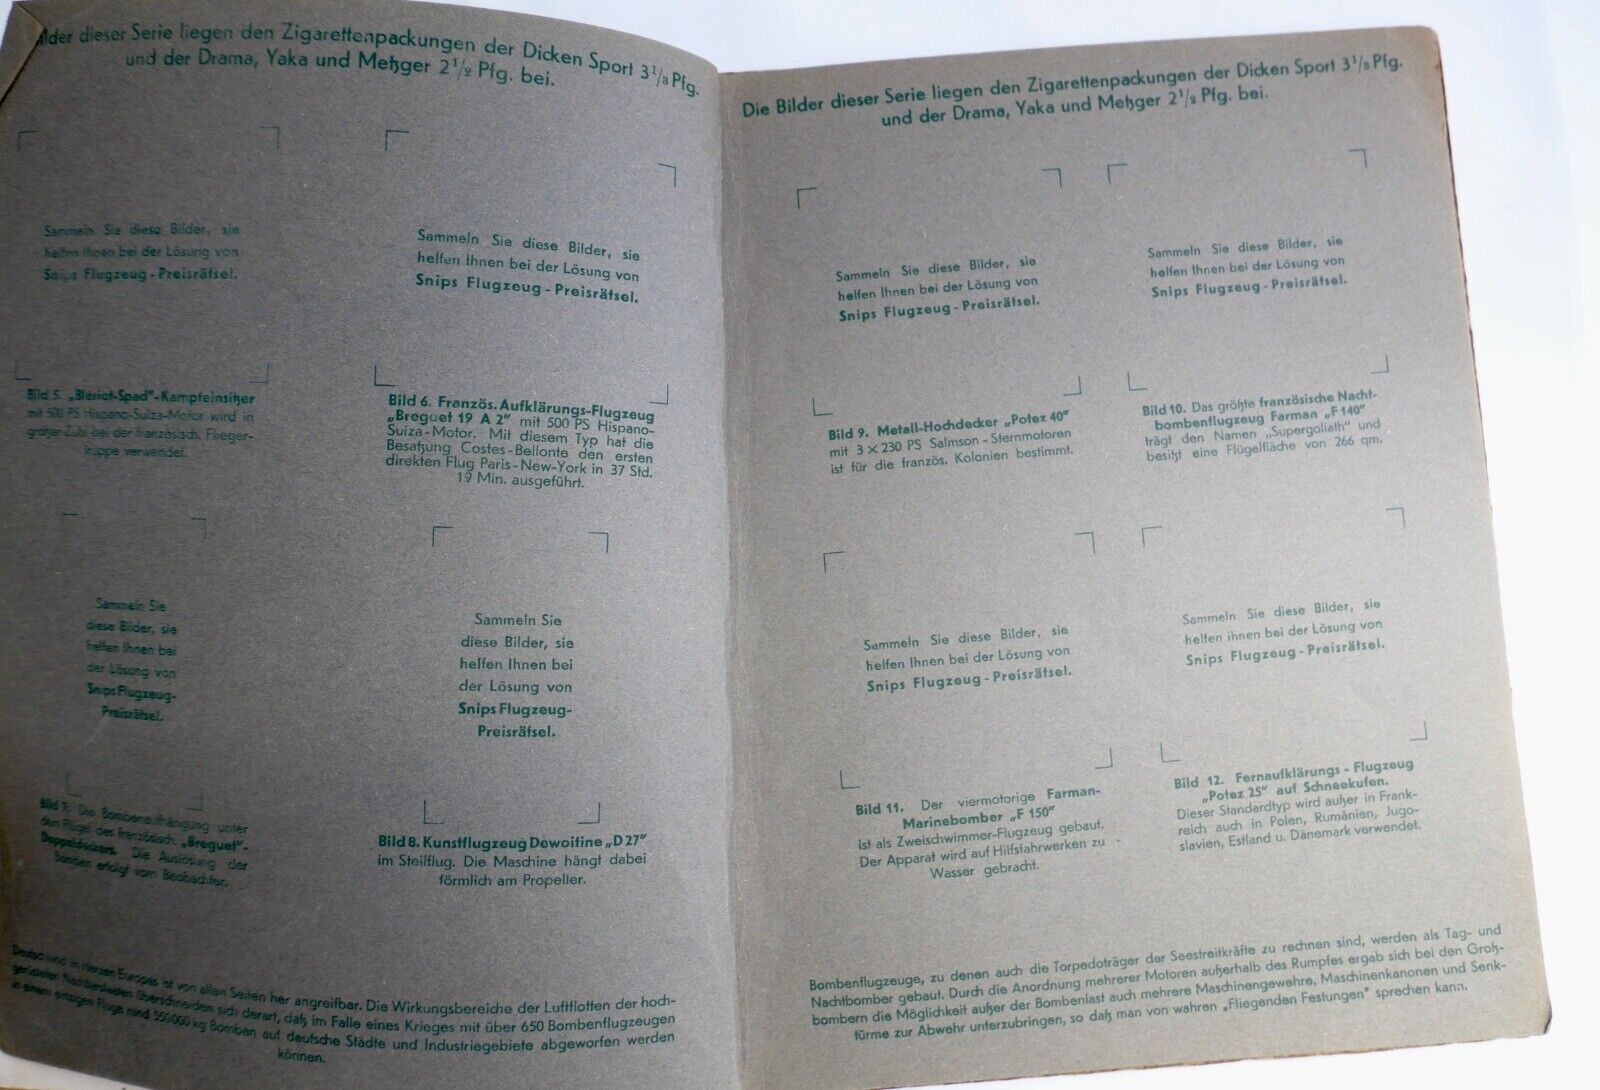 Bilder dieser Serie liegen den Zigarettenpackungen der Dicken Sport 3 1/3 Pfg.
und der Drama, Yaka und Metzger 2 1/2 Pfg. bei.
Sammeln Sie diese Bilder, sie
helfen Ihnen bei der Lösung von
Snips Flugzeug-Preisrätsel.
Bild 5. „Blériot-Spad"-Kampfeinsitzer
mit 500 PS Hispano-Suiza-Motor wird in
großer Zahl bei der französisch. Flieger-
truppe verwendet.
Sammeln Sie diese Bilder, sie
helfen Ihnen bei der Lösung von
Snips Flugzeug-Preisrätsel.
Bild 6. Französ. Aufklärungs-Flugzeug
„Breguet 19 A 2" mit 500 PS Hispano-
Suiza-Motor. Mit diesem Typ hat die
Besatzung Costes-Bellonte den ersten
direkten Flug Paris-New-York in 37 Std.
19 Min. ausgeführt.
Sammeln Sie
diese Bilder, sie
helfen Ihnen bei
der Lösung von
Snips Flugzeug-
Preisrätsel.
Bild 7. Die Bombenaufhängung unter
dem Flügel des französisch. „Breguet"-
Doppeldeckers. Die Auslösung der
Bomben erfolgt vom Beobachter.
Sammeln Sie
diese Bilder, sie
helfen Ihnen bei
der Lösung von
Snips Flugzeug-
Preisrätsel.
Bild 8. Kunstflugzeug Dewoitine „D 27"
im Steilflug. Die Maschine hängt dabei
förmlich am Propeller.
Deutschland im Herzen Europas ist von allen Seiten her angreifbar. Die Wirkungsbereiche der Luftflotten der hoch-
gerüsteten Nachbarstaaten überschneiden sich derart, daß im Falle eines Krieges mit über 650 Bombenflugzeugen
in einem einzigen Fluge rund 350 000 kg Bomben auf deutsche Städte und Industriegebiete abgeworfen werden
können.
Die Bilder dieser Serie liegen den Zigarettenpackungen der Dicken Sport 3 1/3 Pfg.
und der Drama, Yaka und Metzger 2 1/2 Pfg. bei.
Sammeln Sie diese Bilder, sie
helfen Ihnen bei der Lösung von
Snips Flugzeug-Preisrätsel.
Bild 9. Metall-Hochdecker „Potez 40"
mit 3 × 230 PS Salmson-Sternmotoren
ist für die französ. Kolonien bestimmt.
Sammeln Sie diese Bilder, sie
helfen Ihnen bei der Lösung von
Snips Flugzeug-Preisrätsel.
Bild 10. Das größte französische Nacht-
bombenflugzeug Farman „F 140"
trägt den Namen „Supergoliath" und
besitzt eine Flügelfläche von 266 qm.
Sammeln Sie diese Bilder, sie
helfen Ihnen bei der Lösung von
Snips Flugzeug-Preisrätsel.
Bild 11. Der viermotorige Farman-
Marinebomber „F 150"
ist als Zweischwimmer-Flugzeug gebaut.
Der Apparat wird auf Hilfsfahrwerken zu
Wasser gebracht.
Sammeln Sie diese Bilder, sie
helfen ihnen bei der Lösung von
Snips Flugzeug-Preisrätsel.
Bild 12. Fernaufklärungs-Flugzeug
„Potez 25" auf Schneekufen.
Dieser Standardtyp wird außer in Frank-
reich auch in Polen, Rumänien, Jugo-
slavien, Estland u. Dänemark verwendet.
Bombenflugzeuge, zu denen auch die Torpedoträger der Seestreitkräfte zu rechnen sind, werden als Tag- und
Nachtbomber gebaut. Durch die Anordnung mehrerer Motoren außerhalb des Rumpfes ergab sich bei den Groß-
bombern die Möglichkeit außer der Bombenlast auch mehrere Maschinengewehre, Maschinenkanonen und Senk-
türme zur Abwehr unterzubringen, so daß man von wahren „Fliegenden Festungen" sprechen kann.